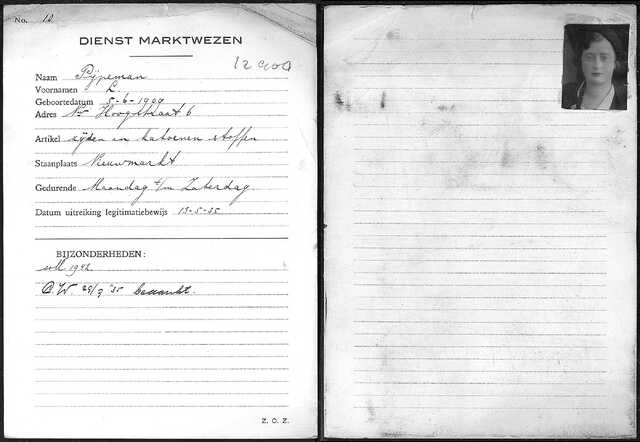 No. 12
DIENST MARKTWEZEN
12900
Naam Pijpeman
Voornamen L.
Geboortedatum 5-6-1909
Adres Nw Hoogstraat 6
Artikel zijden en katoenen stoffen
Staanplaats Nieuwmarkt
Gedurende Maandag t/m Zaterdag
Datum uitreiking legitimatiebewijs 13-5-35
BIJZONDERHEDEN:
soll 1902
B.W. 29/3 '35
Z. O. Z.